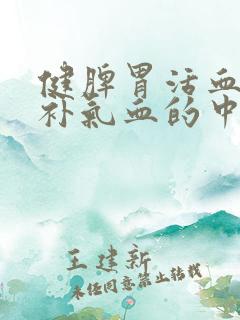 健脾胃活血
补气血的中
王建新
未经同意禁止转载